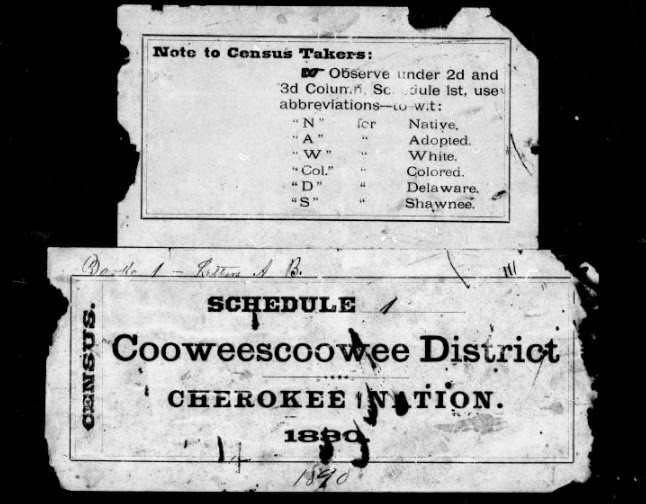 Note to Census Takers:
☞ Observe under 2d and
3d Column, Schedule 1st, use
abbreviations—to-wit:
"N" for Native.
"A" " Adopted.
"W" " White.
"Col." " Colored.
"D" " Delaware.
"S" " Shawnee.
Books 1 — Letters A B.
CENSUS.
SCHEDULE 1
Cooweescoowee District
CHEROKEE NATION.
1890.
1890